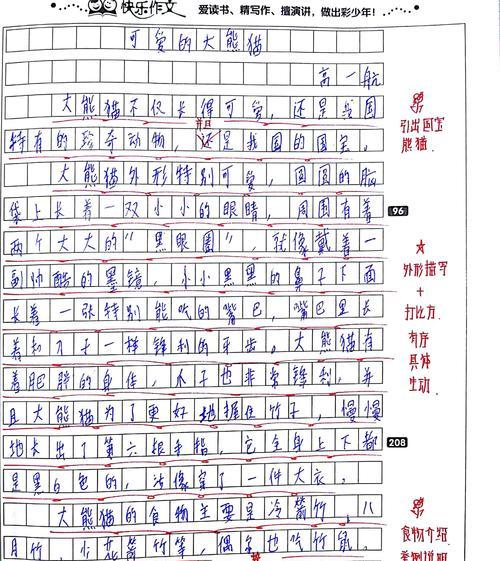 快乐作文 爱读书、精写作、擅演讲，做出彩少年！
可爱的大熊猫
高一航
大熊猫不仅长得可爱，还是我国
并且
特有的珍奇动物，还是我国的国宝。
引出国宝
熊猫
大熊猫外形特别可爱，圆圆的脑
袋上长着一双小小的眼睛，周围有着
96
两个大大的“黑眼圈”，就像戴着一
副帅酷的墨镜，小小黑黑的鼻子下面
外形描写
+
打比方
长着一张特别能吃的嘴巴，嘴巴里长
着和刀子一样锋利的牙齿。大熊猫有
有序
具体
生动
着肥胖的身体，爪子也非常锋利，并
且大熊猫为了更好地握住竹子，慢慢
地长出了第六根手指，它全身上下都
208
是黑白色的，就像穿了一件大衣。
大熊猫的食物主要是冷箭竹，八
月竹，少花箭竹等，偶尔也吃竹鼠。
食物介绍
举例说明